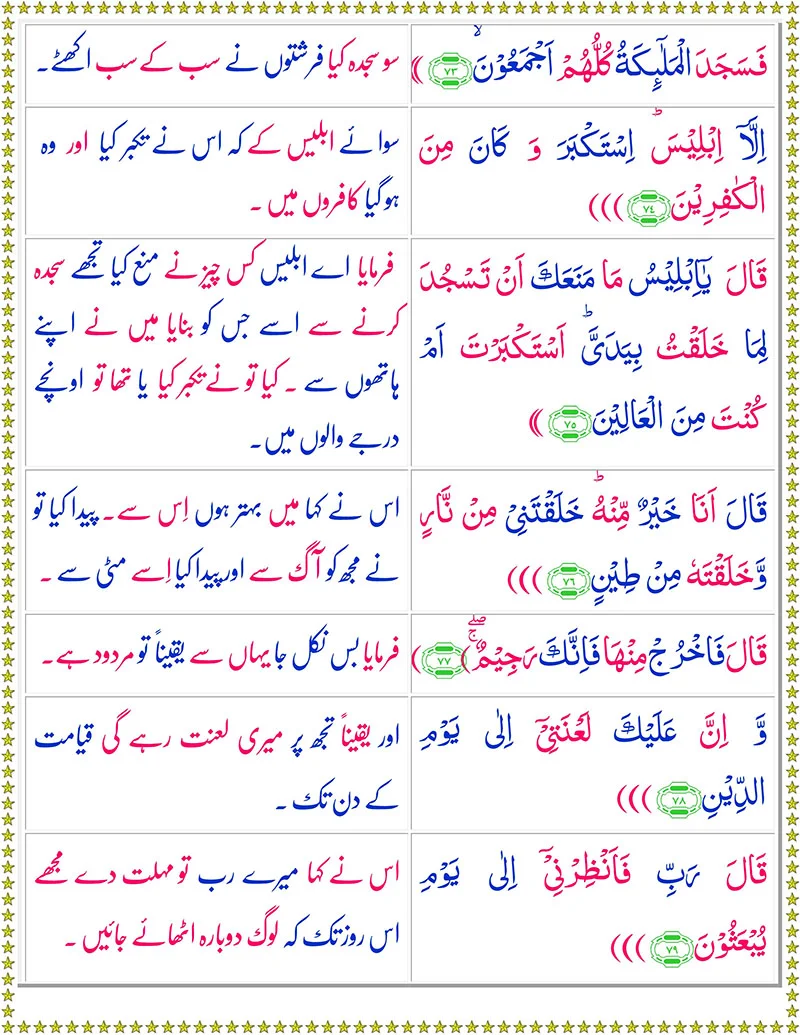 فَسَجَدَ الْمَلٰٓئِكَةُ كُلُّهُمْ اَجْمَعُوْنَ ۙ﴿۷۳﴾
سو سجدہ کیا فرشتوں نے سب کے سب اکھٹے۔
اِلَّاۤ اِبْلِیْسَ ؕ اِسْتَكْبَرَ وَ كَانَ مِنَ
الْكٰفِرِیْنَ ﴿۷۴﴾
سوائے ابلیس کے کہ اس نے تکبر کیا اور وہ
ہوگیا کافروں میں ۔
قَالَ یٰۤاِبْلِیْسُ مَا مَنَعَكَ اَنْ تَسْجُدَ
لِمَا خَلَقْتُ بِیَدَیَّ ؕ اَسْتَكْبَرْتَ اَمْ
كُنْتَ مِنَ الْعَالِیْنَ ﴿۷۵﴾
فرمایا اے ابلیس کس چیز نے منع کیا تجھے سجدہ
کرنے سے اسے جس کو بنایا میں نے اپنے
ہاتھوں سے ۔ کیا تو نے تکبر کیا یا تھا تو اونچے
درجے والوں میں۔
قَالَ اَنَا خَیْرٌ مِّنْهُ ؕ خَلَقْتَنِیْ مِنْ نَّارٍ
وَّ خَلَقْتَهٗ مِنْ طِیْنٍ ﴿۷۶﴾
اس نے کہا میں بہتر ہوں اِس سے۔ پیدا کیا تو
نے مجھ کو آگ سے اور پیدا کیا اِسے مٹی سے ۔
قَالَ فَاخْرُجْ مِنْهَا فَاِنَّكَ رَجِیْمٌ ۚۖ﴿۷۷﴾
فرمایا بس نکل جا یہاں سے یقیناً تو مردود ہے۔
وَّ اِنَّ عَلَیْكَ لَعْنَتِیْۤ اِلٰی یَوْمِ
الدِّیْنِ ﴿۷۸﴾
اور یقیناً تجھ پر میری لعنت رہے گی قیامت
کے دن تک ۔
قَالَ رَبِّ فَاَنْظِرْنِیْۤ اِلٰی یَوْمِ
یُبْعَثُوْنَ ﴿۷۹﴾
اس نے کہا میرے رب تو مہلت دے مجھے
اس روز تک کہ لوگ دوبارہ اٹھائے جائیں ۔